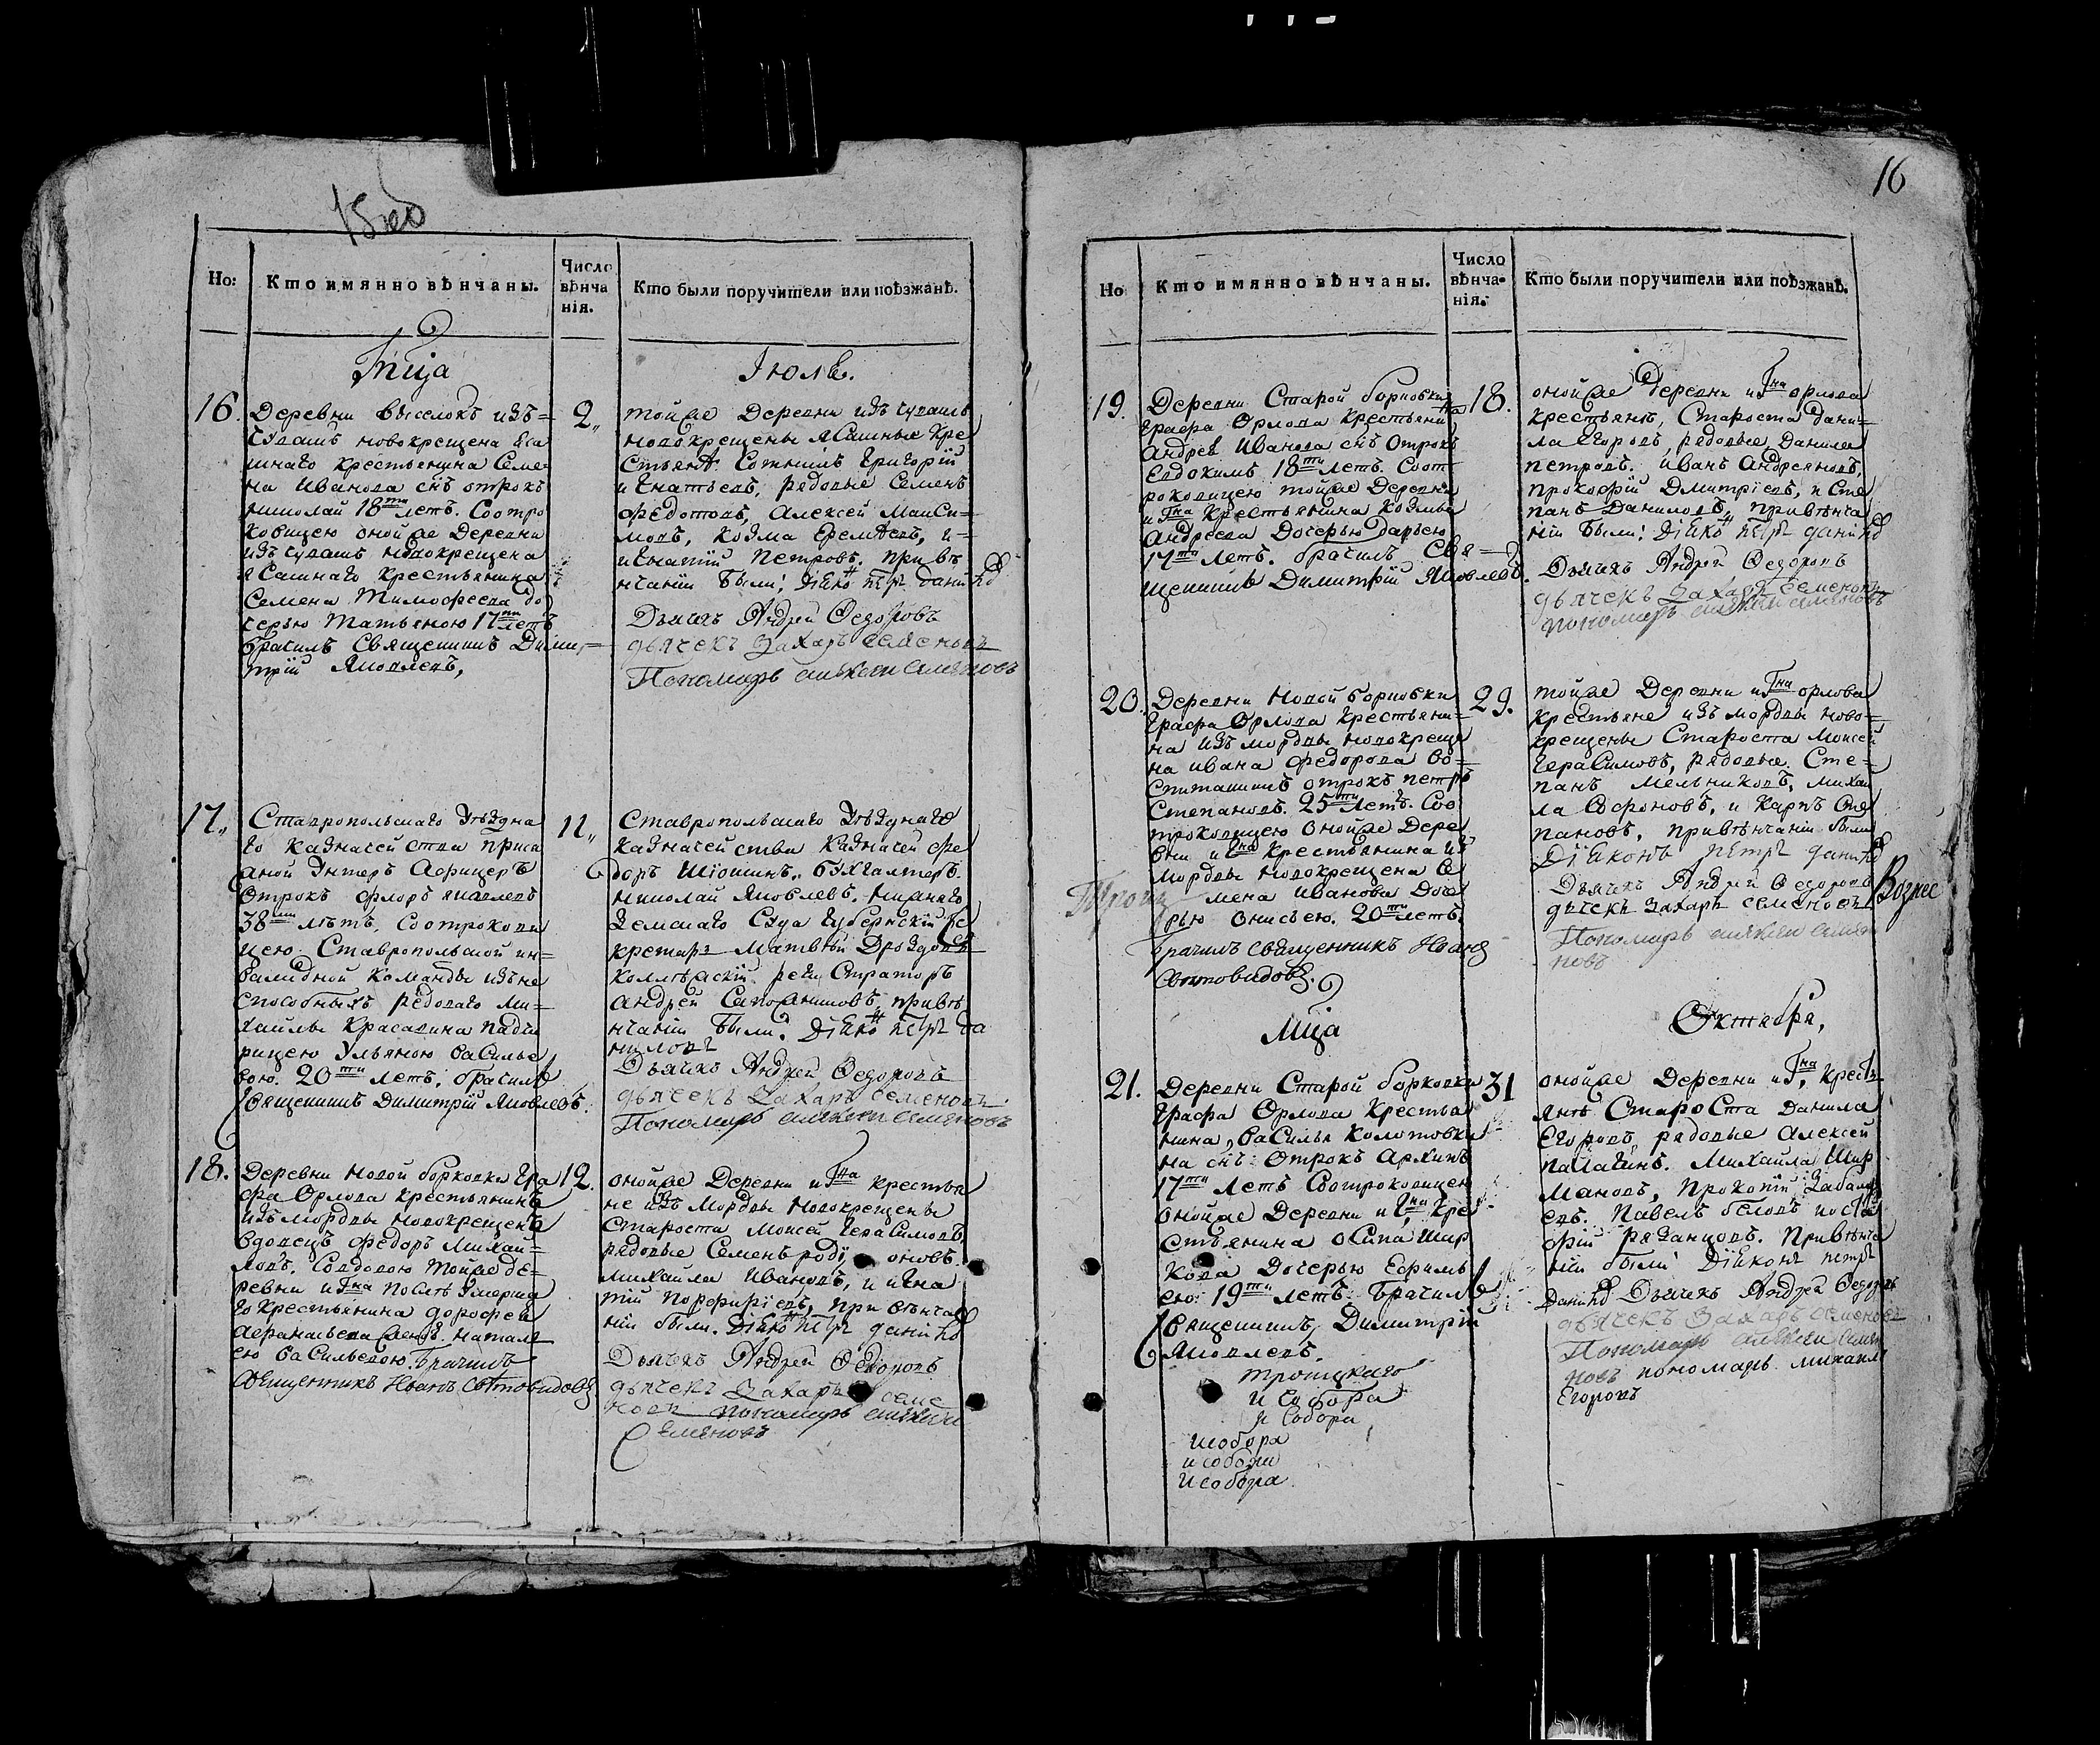 15 об
Но:
Кто имянно вѣнчаны.
Число вѣнча нія.
Кто были поручители или поѣзжанѣ.
Мца
Іюль.
16.
Деревни Выселокъ изъ=
чувашъ новокрещена яса
шнаго крестьянина Семе
на Иванова снъ отрокъ
Николай 18ти летъ. Соотро
ковицею оной же Деревни
изъ чувашъ новокрещена
ясашнаго крестьянина
Семена Тимофеева до
черью Татьяною 17ти летъ
брачилъ Священникъ Дими=
трїй Яковлевъ,
2„
той же Деревни изъ чувашъ
новокрещены ясашные кре
стьянѣ Сотникъ Григорїй
Игнатьевъ, рядовые Семенъ
Федотовъ, Алексей Макси=
мовъ, Козма Еремѣевъ, и=
Игнатїй Петровъ. при вѣ
нчанїи были: Дїяконъ Петръ Данило
Дьячекъ Андрей Федоровъ
дьячекъ Захаръ Семеновъ
Пономарь Алѣкѣй Семяновъ
17„
Ставропольскаго Уѣздна
го казначейства приса
жной Унтеръ Афицеръ
отрокъ Флоръ Яковлевъ
38ми лѣтъ, Соотрокови
цею Ставропольской ин=
валидной команды изъ не
способныхъ рядоваго Ми=
хайлы Красавина падче
рицею Ульяною Василье
вою. 20ти летъ. брачилъ
Священникъ Димитрїй Яковлевъ.
11„
Ставропольскаго Уѣзднаго
казначейства казначей Фе
доръ Шїошинъ„ бухгалтеръ
Николай Яковлевъ. нижняго
земскаго суда губернскїй се
кретарь Матвѣй Дроздовъ
коллѣжскїй регистраторъ
Андрей Сапожниковъ, привѣ
нчанїи были: Дїяконъ Петръ Да
ниловъ
Дьячекъ Андрей Федоровъ
дьячекъ Захаръ Семеновъ
Пономарь Алѣкѣй Семяновъ
18.
Деревни Новой борковки Гра
фа Орлова крестьянинъ
изъ мордвы новокрещенъ
вдовецъ Федоръ Михай=
ловъ. Со вдовою той же де=
ревни и Гна послѣ умерша
го крестьянина Дорофея
Афанасьева женъ. Наталь
ею Васильевою. Брачилъ
Священникъ Иванъ Свѣтовидовъ
12.
оной же Деревни и Гна крестья
не изъ Мордвы новокрещены
староста Моисей Герасимовъ
рядовые Семенъ Родионовъ.
Михайла Ивановъ, и Игна
тїй Порфирїевъ, при вѣнча
нїи были. Дїяконъ Петръ Данило
Дьячекъ Андрей Федоровъ
дьячекъ Захаръ Семе
новъ пономарь Алѣкѣй
Семяновъ
16
Но
Кто имянно вѣнчаны.
Число вѣнча- нія.
Кто были поручители или поѣзжанѣ.
19.
Деревни Старой борковки
Графа Орлова крестьянина
Андрея Иванова снъ отрокъ
Евдокимъ 18ти летъ. Соот
роковицею той же Деревни
и Гна крестьянина Козмы
Андреева Дочерью Дарьею
17ти летъ. брачилъ Свя=
щенникъ Димитрїй Яковлевъ.
18.
оной же деревни и Гна орлова
крестьянѣ, Староста Дани=
ла Егоровъ, рядовые, Данила
петровъ. Иванъ Андреяновъ,
Прокофїй Дмитрїевъ, и Сте
панъ Даниловъ, привѣнча
нїи были: Дїяконъ Петръ Данило
Дьячекъ Андрей Федоровъ
дьячекъ Захаръ Семеновъ
пономарь Алѣкѣй Семяновъ
20.
Деревни Новой борковки
Графа Орлова крестьяни=
на изъ мордвы новокреще
на Ивана Федорова во=
спитанникъ отрокъ Петръ
Степановъ. 25ти летъ. Соо
троковицею оной же Дере
вни и Гна крестьянина изъ
мордвы новокрещена Се
мена Иванова Доче
рью Онисьею. 20ти летъ.
брачилъ священникъ Иванъ
Свѣтовидовъ.
29.
той же Деревни и Гна орлова
крестьяне изъ мордвы ново=
крещены Староста Моисей
Герасимовъ, рядовые. Сте=
панъ Мельниковъ, Михай
ла Софоновъ, и Карпъ Сте
пановъ, привѣнчанїи были
Дїяконъ Петръ Данило
Дьячекъ Андрей Федоровъ
дьячекъ Захаръ Семеновъ
Пономарь Алѣкѣй Семя
новъ
Вознес
Троиц
Мца
Октября,
21.
Деревни Старой борковки
Графа Орлова крестья
нина, Василья Колотовки
на снъ: отрокъ Архипъ
17ти летъ Соотроковицею
оной же Деревни и Гна, кре
стьянина Осипа Шир
кова Дочерью Ефимь
ею: 19ти летъ. Брачилъ
Священникъ Димитрїй
Яковлевъ.
троицкаго
и собора
и собора
и собора
и собора
и собора
31
оной же Деревни и Гна, кресть
янѣ Староста Данила
Егоровъ, рядовые Алексей
Палагинъ. Михайла Шир
мановъ, Прокопїй Забалу
евъ. Павелъ Беловъ
привѣнча
нїи были Дїяконъ Петръ
Данило Дьячекъ Андрей Федоровъ
дьячекъ Захаръ Семеновъ
Пономарь Алѣкѣй Семя
новъ пономарь Михаилъ
Егоровъ